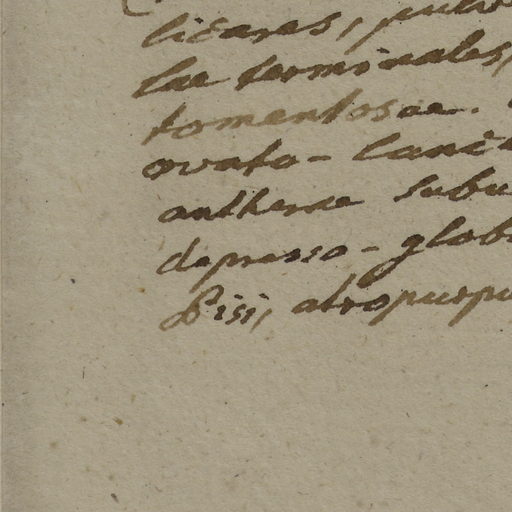 licares, pube
lae terminales,
tomentosae.
ovato-lance
antherae subu
depresso-glob
Pisi, atropurpu